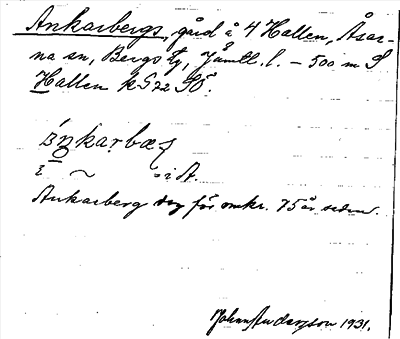 Ankarbergs, gård å 4 Hallen, Åsar-
na sn, Bergs tg, Jämtl. l. – 500 m S
Hallen k S22 SÖ.
i ~ = i A.
Ankarberg sög för omkr. 75 år sedan.
Johan Andersson 1931.